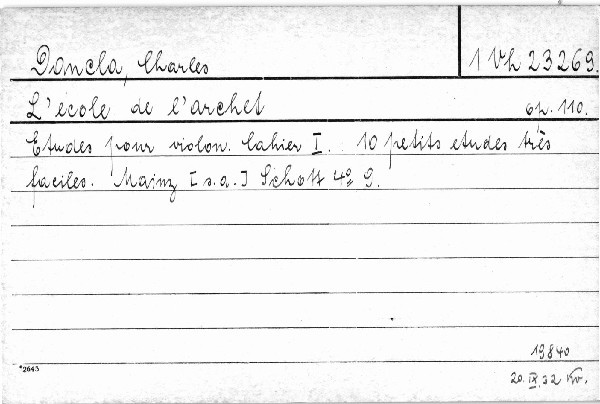 Dancla, Charles 1 Vh 23269.
L'école de l'archet op. 110.
Etudes pour violon. Cahier I. 10 petits etudes très
faciles. Mainz [s.a.] Schott 4º 9.
19840
*2643
20. IX. 32 Kv.